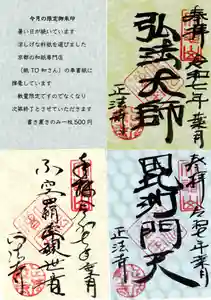 今月の限定御朱印
暑い日が続いています
涼しげな料紙を選びました
京都の和紙専門店
(紙TO和さん)の奉書紙に
揮毫しています
数量限定ですのでなくなり
次第終了とさせていただきます
書き置きのみ一枚500円
奉拝 令和七年葉月
弘法大師
正法寺
奉拝 令和七年葉月
不空羂索観世音
正法寺
奉拝 令和七年葉月
毘沙門天
正法寺